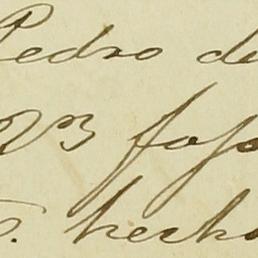 Pedro de
23 fojas
hecho